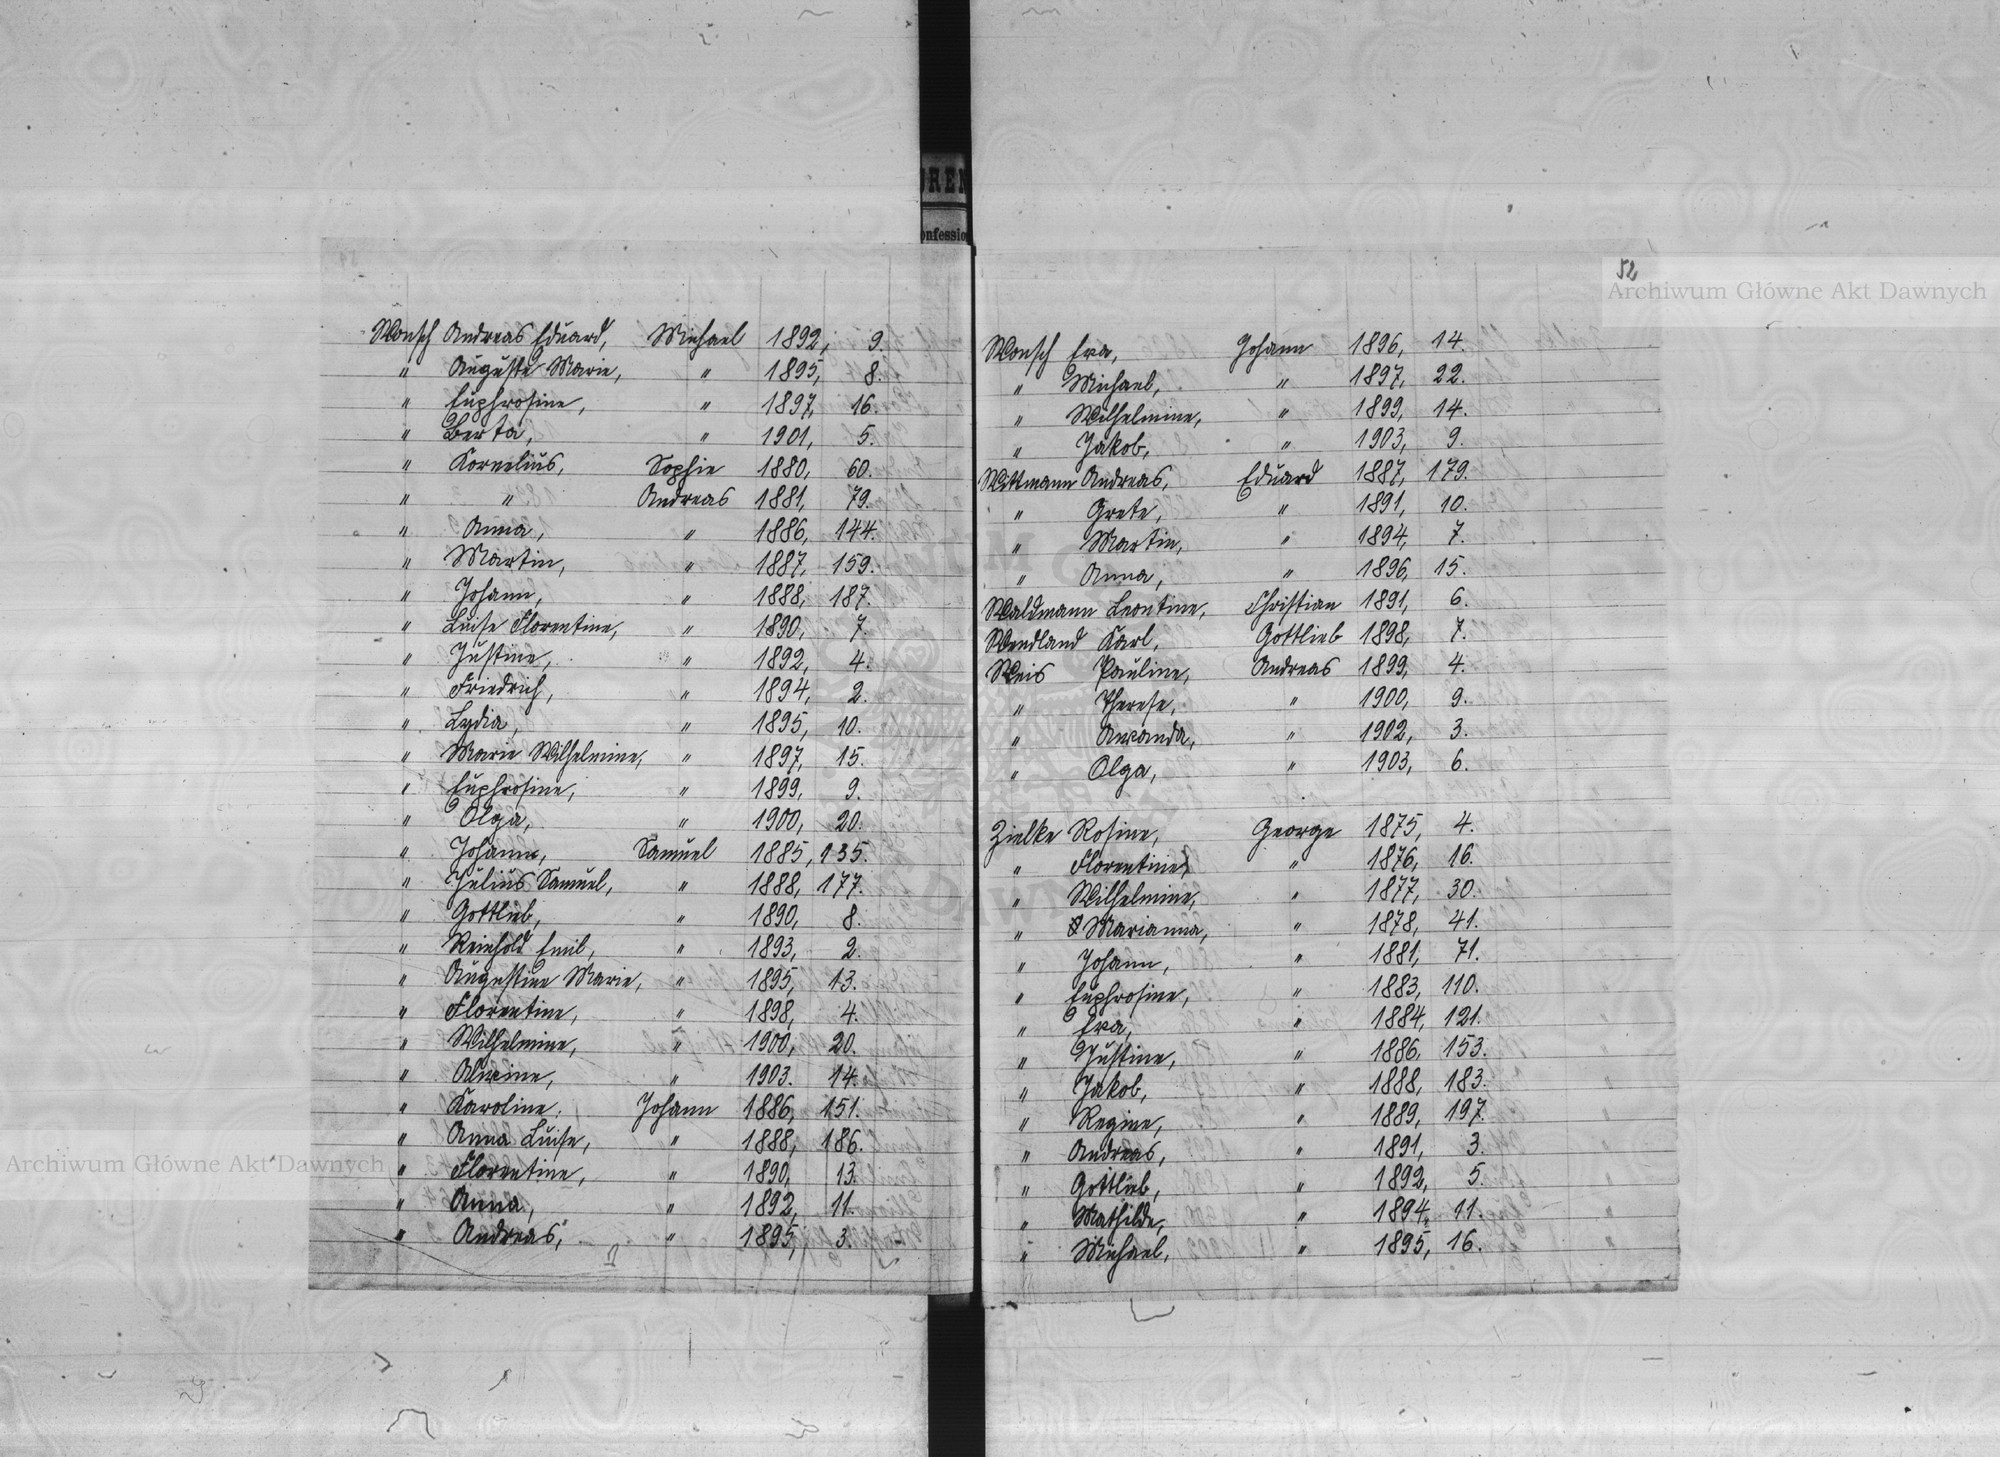 Wonsch Andreas Eduard, Michael 1892, 9.
" Auguste Marie, " 1895, 8.
" Euphrosine, " 1897, 16.
" Berta, " 1901, 5.
" Kornelius, Sophie 1880, 60.
" " Andreas 1881, 79.
" Anna, " 1886, 144.
" Martin, " 1887, 159.
" Johann, " 1888, 187.
" Luise Florentine, " 1890, 7.
" Justine, " 1892, 4.
" Friedrich, " 1894, 2.
" Lydia, " 1895, 10.
" Marie Wilhelmine, " 1897, 15.
" Euphrosine, " 1899, 9.
" Olga, " 1900, 20.
" Johann, Samuel 1885, 135.
" Julius Samuel, " 1888, 177.
" Gottlieb, " 1890, 8.
" Reinhold Emil, " 1893, 2.
" Augustine Marie, " 1895, 13.
" Florentine, " 1898, 4.
" Wilhelmine, " 1900, 20.
" Alwine, " 1903. 14.
" Karoline, Johann 1886, 151.
" Anna Luise, " 1888, 186.
" Florentine, " 1890, 13.
" Anna, " 1892, 11.
" Andreas, " 1895, 3.
52
Archiwum Główne Akt Dawnych
Wonsch Eva, Johann 1896, 14.
" Michael, " 1897, 22.
" Wilhelmine, " 1899, 14.
" Jakob, " 1903, 9.
Wittmann Andreas, Eduard 1887, 179.
" Grete, " 1891, 10.
" Martin, " 1894, 7.
" Anna, " 1896, 15.
Waldmann Leontine, Christian 1891, 6.
Wendland Karl, Gottlieb 1898, 7.
Weis Pauline, Andreas 1899, 4.
" Therese, " 1900, 9.
" Amanda, " 1902, 3.
" Olga, " 1903, 6.
Zielke Rosine, George 1875, 4.
" Florentine, " 1876, 16.
" Wilhelmine, " 1877, 30.
" Marianna, " 1878, 41.
" Johann, " 1881, 71.
" Euphrosine, " 1883, 110.
" Eva, " 1884, 121.
" Justine, " 1886, 153.
" Jakob, " 1888, 183.
" Regine, " 1889, 197.
" Andreas, " 1891, 3.
" Gottlieb, " 1892, 5.
" Mathilde, " 1894, 11.
" Michael, " 1895, 16.
Archiwum Główne Akt Dawnych